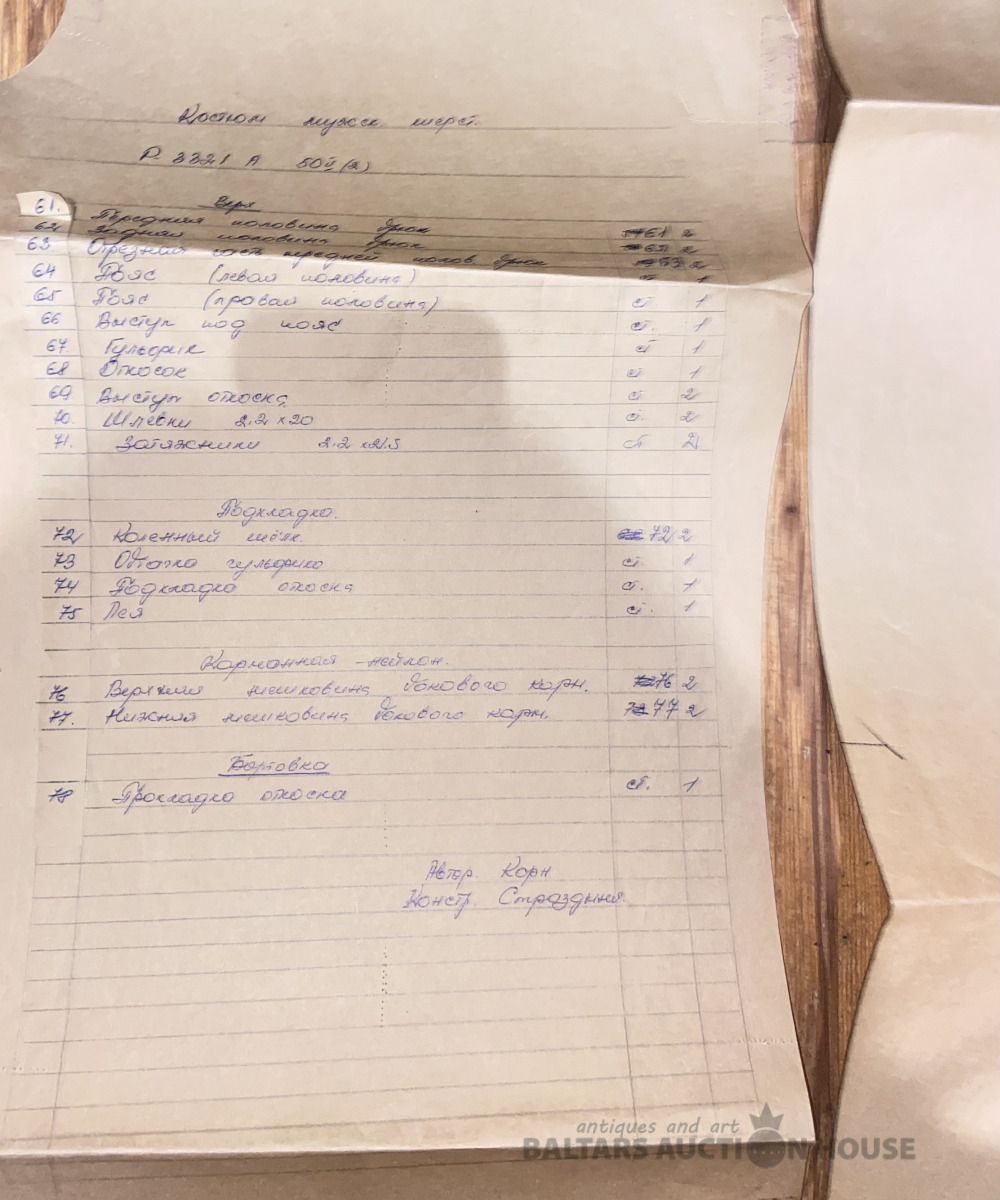 Костюм мужск. шерст.
Р. 3321 А 50 II (2)
Верх
61. Передняя половина брюк 61 2
62. Задняя половина брюк 62 2
63 Отрезная часть передней полов. брюк 2
64 Пояс (левая половина) ст. 1
65 Пояс (правая половина) ст. 1
66 Выступ под пояс ст. 1
67. Гульфик ст 1
68 Откосок ст 1
69 Выступ откоска ст. 2
70. Шлевки 2.2 x 20 ст. 2
71. Затяжники 2.2 x 21.5 ст 2
Подкладка.
72 Коленный шёлк 72 2
73 Обтачка гульфика ст. 1
74 Подкладка откоска ст. 1
75 Лея ст. 1
Карманная - нейлон.
76 Верхняя мешковина бокового карм. 76 2
77. Нижняя мешковина бокового карм. 77 2
Бортовка
78 Прокладка откоска ст. 1
Автор Корн
Констр. Страздыня.
antiques and art
BALTARS AUCTION HOUSE